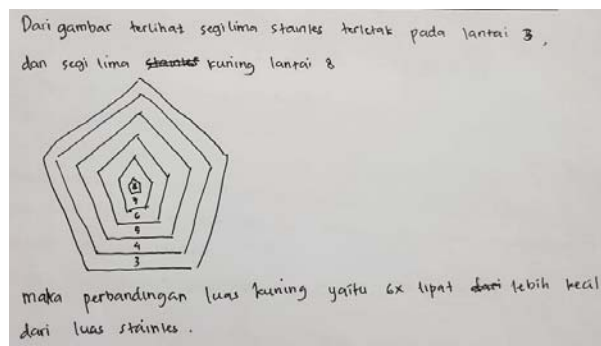 Dari gambar terlihat segilima stainles terletak pada lantai 3,
dan segi lima stainles kuning lantai 8
8
7
6
5
4
3
maka perbandingan luas kuning yaitu 6x lipat dari lebih kecil
dari luas stainles.